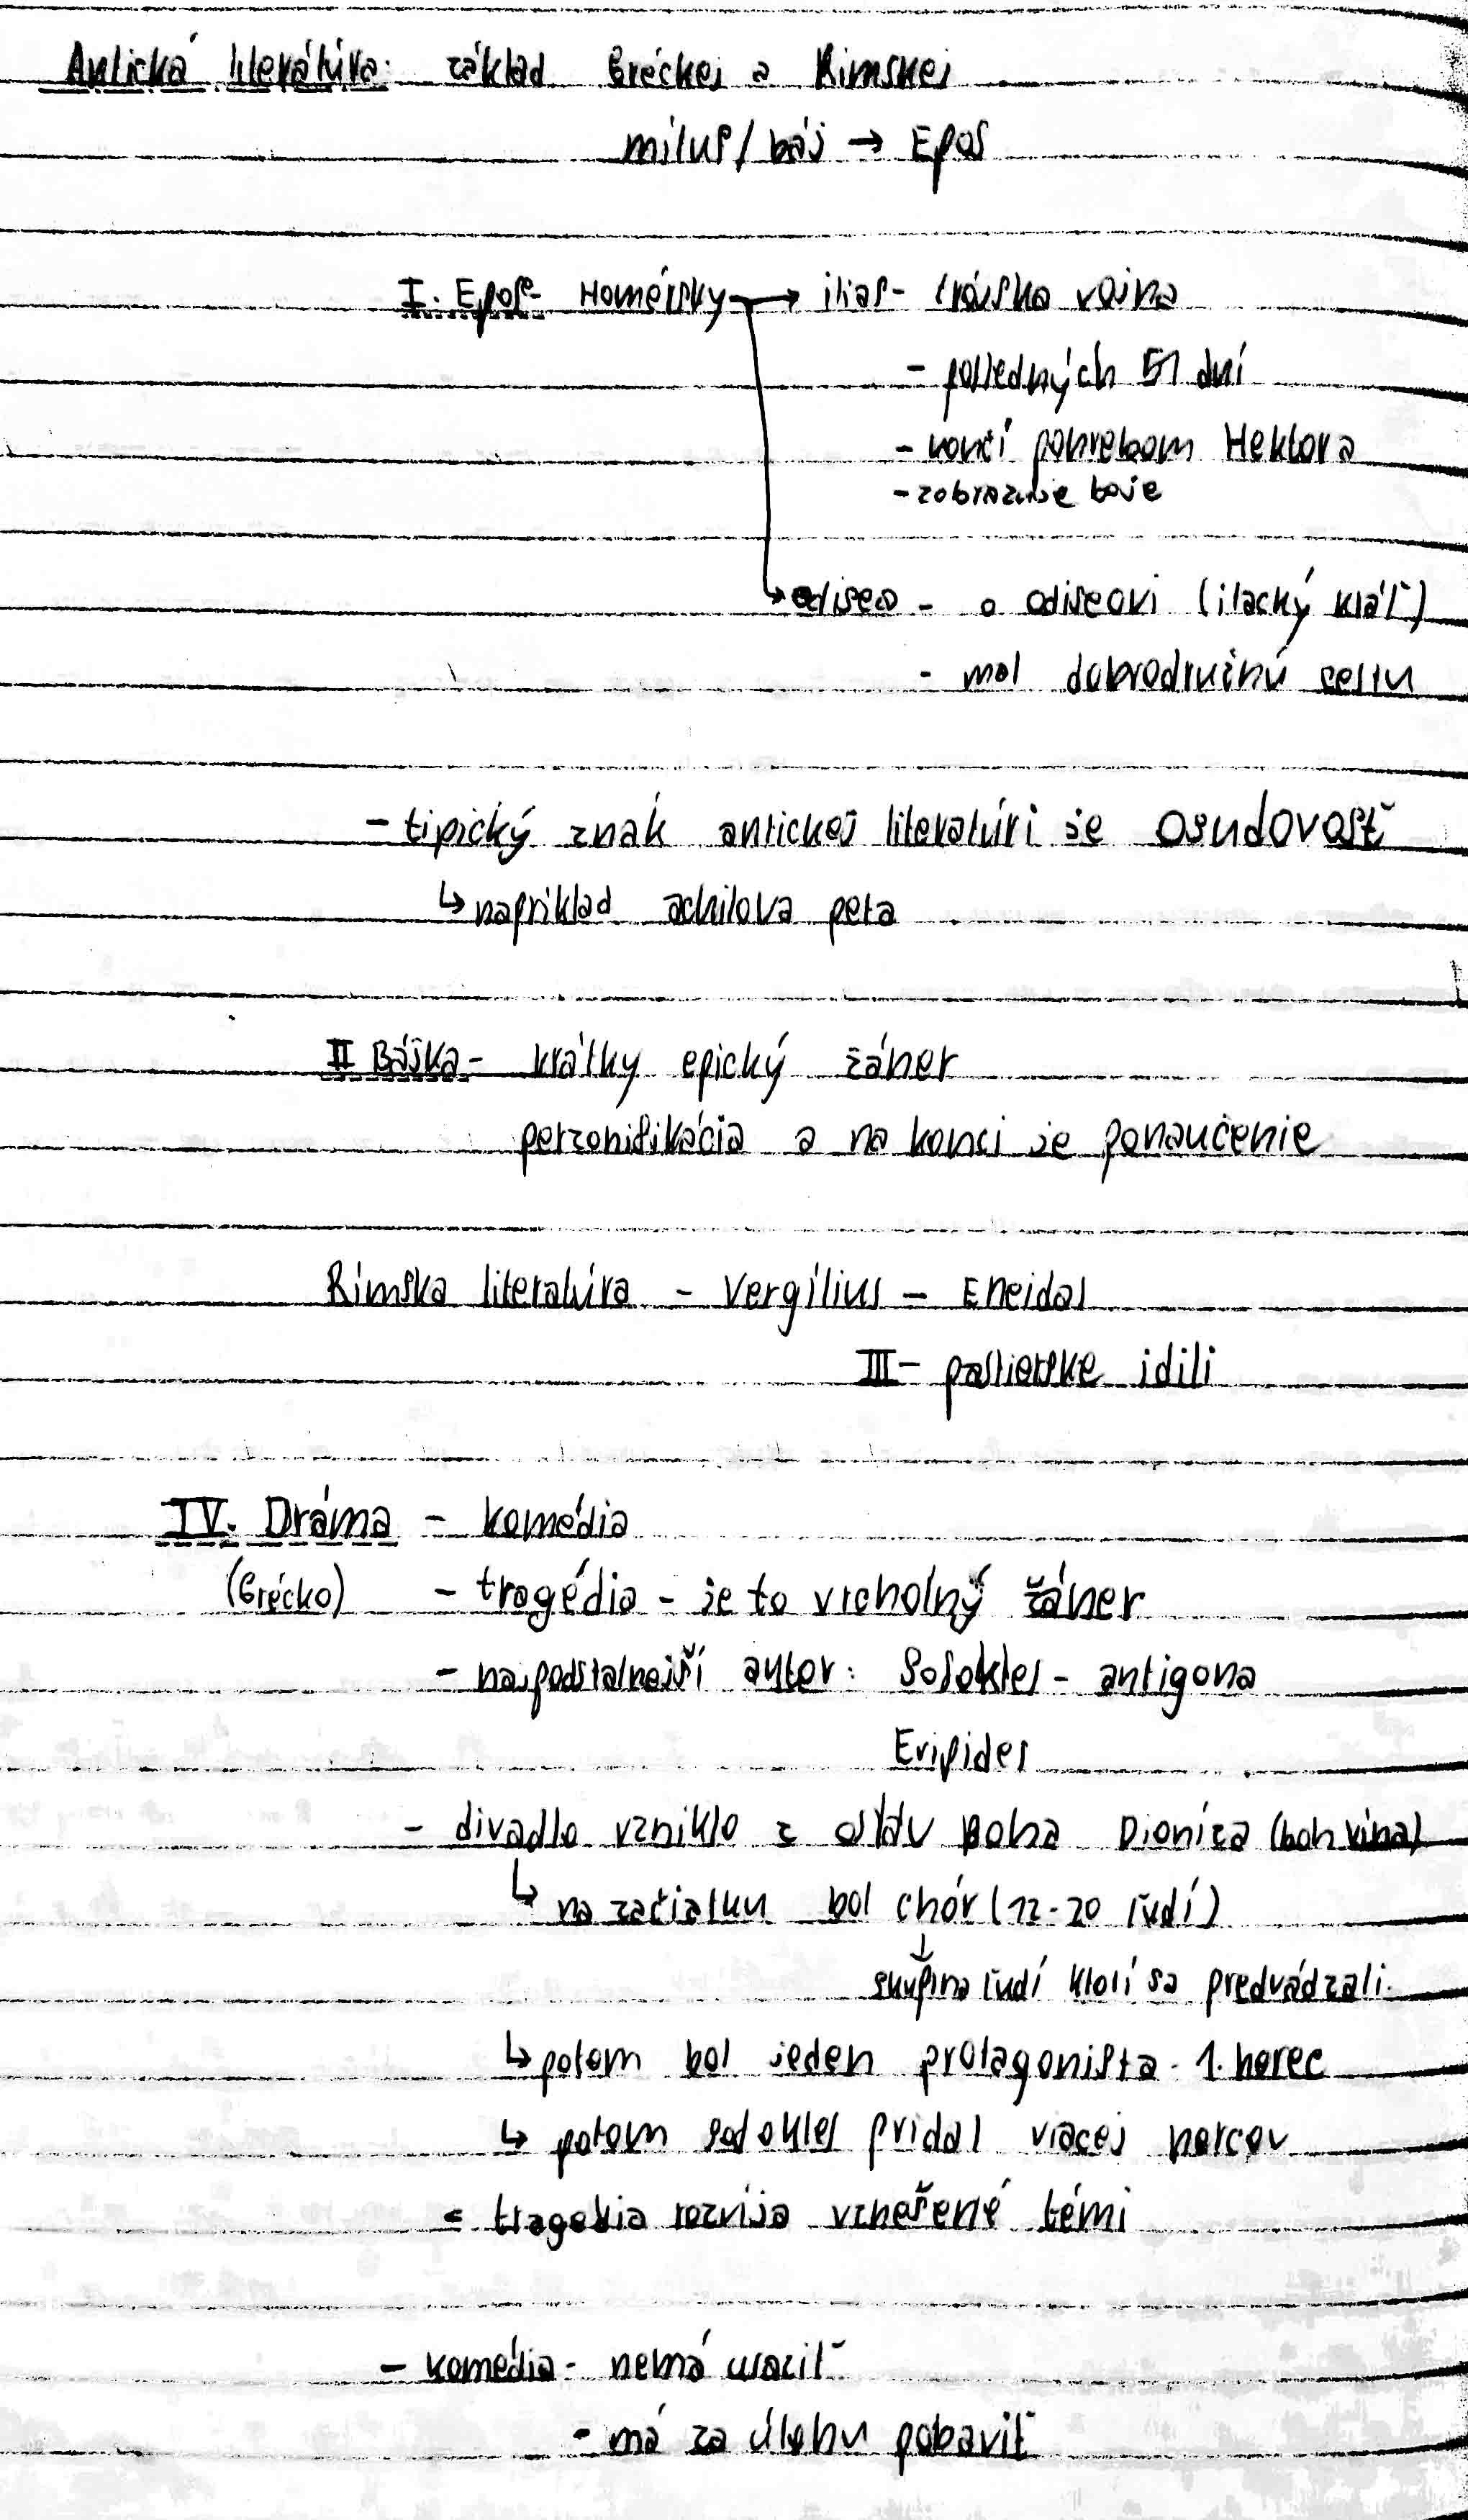 Antická literatúra: základ Gréckej a Rímskej
mítus/báj → Epos
I. Epos- Homérsky → ilias- trójska vojna
- posledných 51 dní
- končí pohrebom Hektora
- zobrazuje boje
↳ odisea - o odiseovi (itacký kráľ)
- mal dobrodružnú cestu
- tipický znak antickej literatúri je osudovosť
↳ napríklad achilova peta
II Bájka - krátky epický žáner
perzonifikácia a na konci je ponaučenie
Rímska literatúra - Vergílius - Eneidas
III - pastierske idili
IV. Dráma - komédia
(Grécko) - tragédia - je to vrcholný žáner
- najpodstatnejší autor: Sofokles - antigona
Eripides
- divadlo vzniklo z osláv Boha Dioníza (boh vína)
↳ na začiatku bol chór (12-20 ľudí)
↓
skupina ľudí ktorí sa predvádzali
↳ potom bol jeden protagonista - 1. herec
↳ potom sofokles pridal viacej hercov
= tragedia rozvíja vznešené témi
- komédia - nemá uraziť
- má za úlohu pobaviť